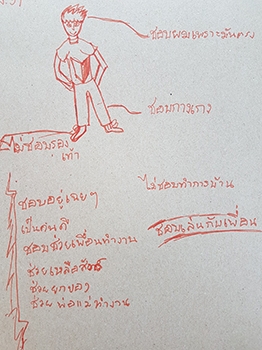 ชอบผมเพราะมัน
ชอบกางเกง
ไม่ชอบรอง
เท้า
ชอบอยู่เฉยๆ
เป็นคนดี
ชอบช่วยเพื่อนทำงาน
ช่วยเหลือสัตว์
ช่วยยกของ
ช่วยพ่อแม่ทำงาน
ไม่ชอบทำการบ้าน
ชอบเล่นกับเพื่อน